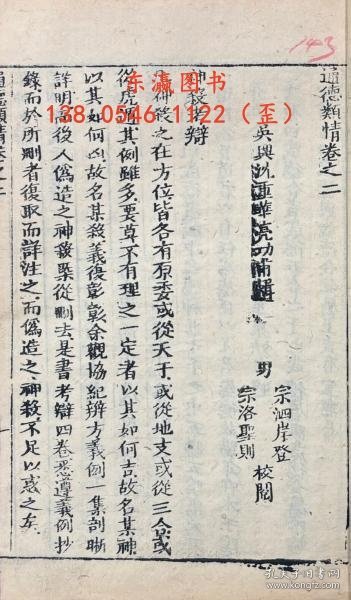 143
东瀛图书
138-0546-1122（歪）
通德類情卷之二
吳興沈重華亮功甫輯
男
宗泗岸登
宗洛聖則
校閱
神殺考辯
神殺之在方位皆各有原委或從天干或從地支或從三合或
從虎遁其例雖多要莫不有理之一定者以其如何吉故名某神
以其如何凶故名某殺義復彰彰余觀協紀辨方義例一集剖晰
詳明高後人偽造之神殺槩從刪去是書考辯四卷悉遵義例抄
錄而於所刪者復取而詳注之而偽造之神殺不足以惑之矣
通德類情卷之二
孔夫子旧书网